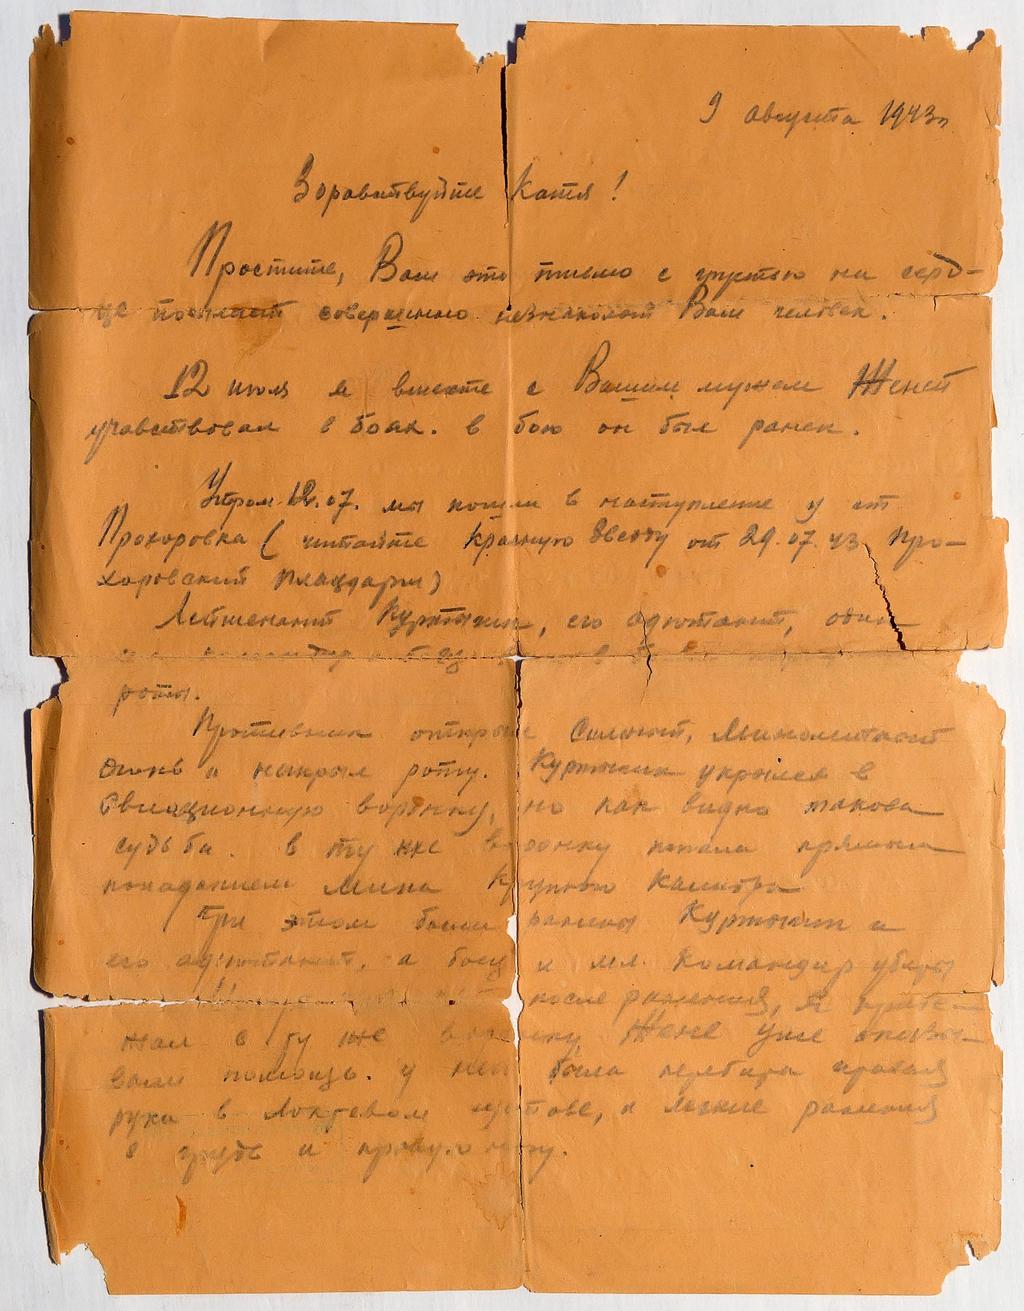 9 августа 1943г
Здравствуйте Катя!
Простите, Вам это письмо с грустью на серд-
це посылает совершенно незнакомый Вам человек.
12 июля я вместе с Вашим мужем Женей
учавствовал в боях. в бою он был ранен.
Утром 12.07. мы пошли в наступление у ст
Прохоровка ( читайте Красную Звезду от 29.07.43 Про-
хоровский плацдарм)
Лейтенант Куртыгин, его адютант, один
роты.
Противник открыл сильный, минометный
огонь и накрыл роту. Куртыгин укрылся в
авиационную воронку, но как видно такова
судьба. в ту же воронку попала прямым
попаданием мина крупного калибра
При этом были ранены Куртыгин и
его адютант. а боец и мл. командир убиты
после ранения, я прибе-
жал в ту же воронку Жене уже оказы-
вали помощь. у него была перебита правая
рука в локтевом суставе, и легкие ранения
в грудь и правую ногу.